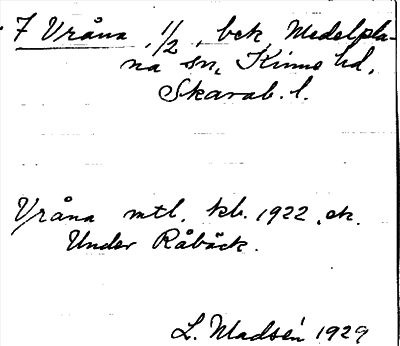 7 Vråna, 1/2, bck, Medelpla-
na sn, Kinne hd,
Skarab. l.
Vråna mtl. kb. 1922, ek.
Under Råbäck.
L. Madsén 1929